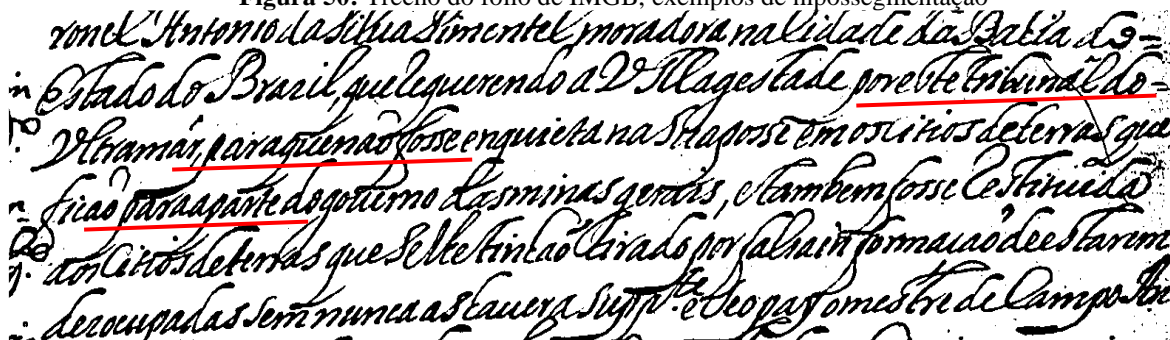 Figura 50: Trecho do fólio de IMGB, exemplos de hipossegmentação
ronel Antonio da Silua Pimentel moradora na Cidade da Bahia do
Estado do Brazil, que Requerendo a VMagestade poreste tribunal do
Vltramar, paraquenaõ fosse enquietana Suaposse emosCitios deterras que
ficaõ paraaparte dogouerno dasminas gerais, etambem fosse Restituida
aos Citios deterras que Selhetinhaõ tirado por falsa informaçaõ deestarem
dezocupadas Sem nunca as tauera Supp.te e Seo pay omestre de Campo